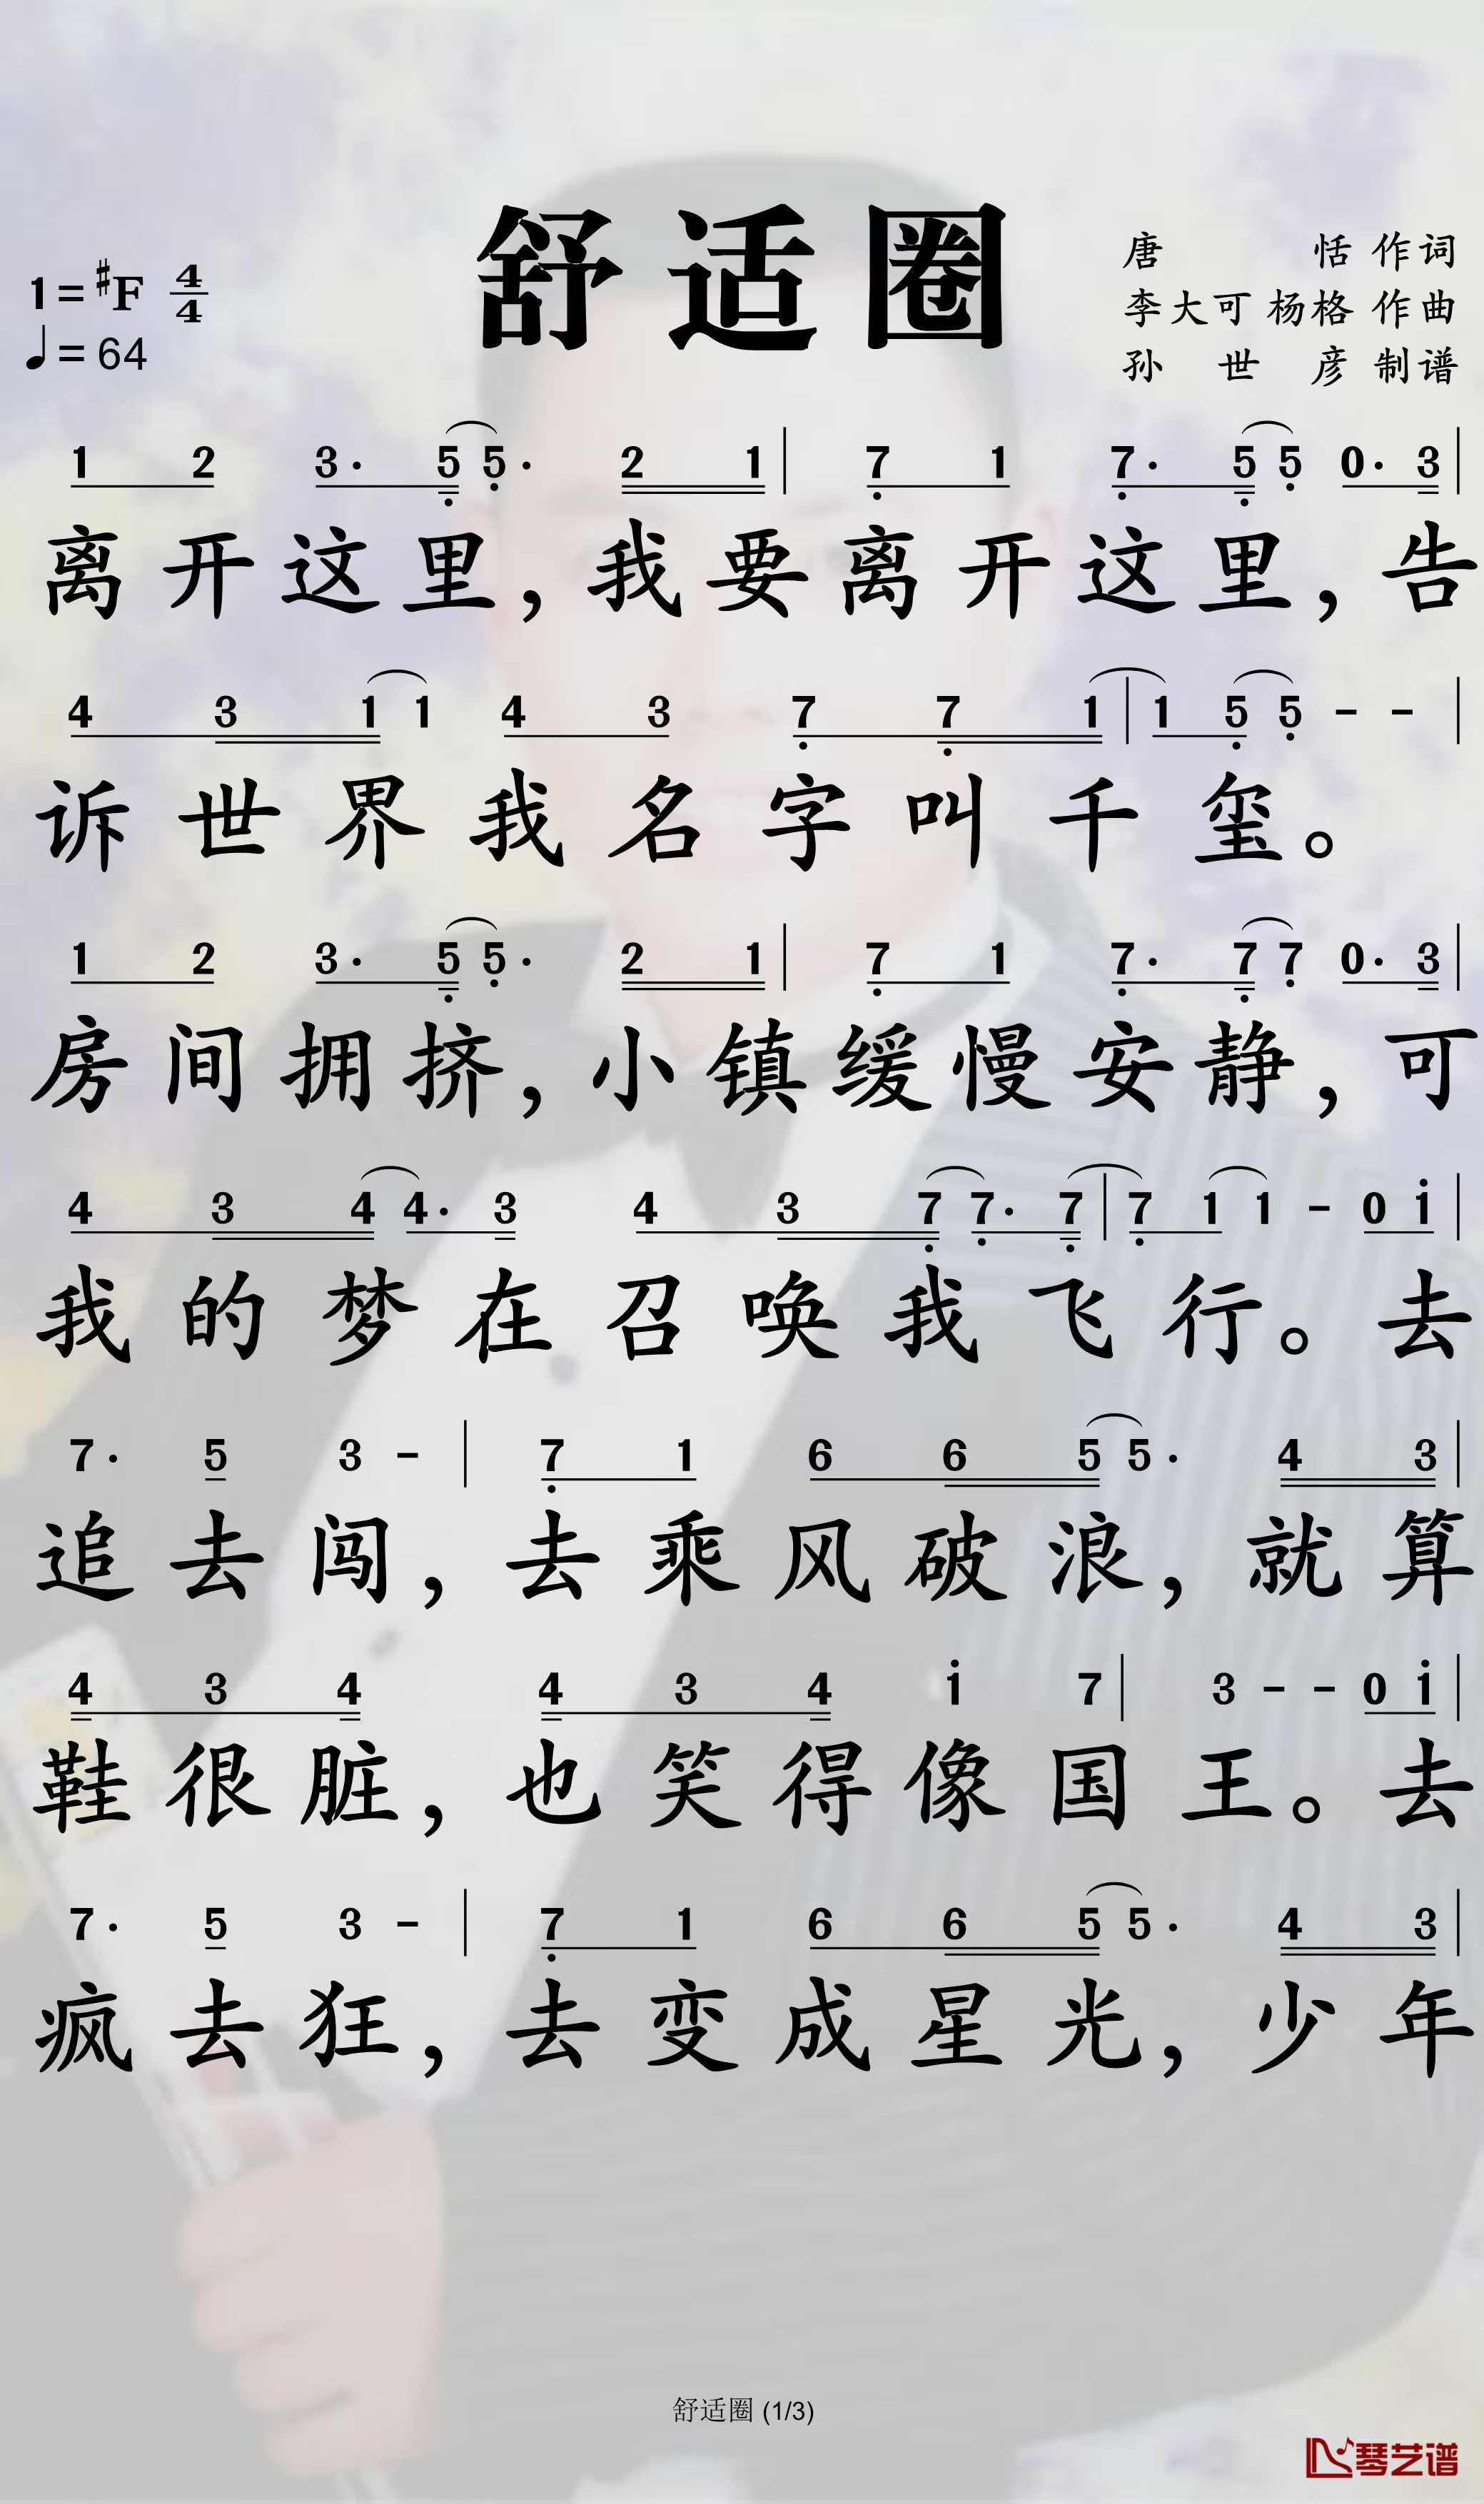 舒适圈
1=♯F 4/4
♩=64
唐 恬 作词
李大可 杨格 作曲
孙 世 彦 制谱
1 2 3· 5̣ 5̣· 2 1 | 7̣ 1 7̣· 5̣ 5̣ 0· 3 |
离开这里，我要离开这里，告
4 3 1 1 4 3 7̣ 7̣ 1 | 1 5̣ 5̣ - - |
诉世界我名字叫千玺。
1 2 3· 5̣ 5̣· 2 1 | 7̣ 1 7̣· 7̣ 7̣ 0· 3 |
房间拥挤，小镇缓慢安静，可
4 3 4 4· 3 4 3 7̣ 7̣· 7̣ | 7̣ 1 1 - 0 i |
我的梦在召唤我飞行。去
7· 5 3 - | 7̣ 1 6 6 5 5· 4 3 |
追去闯，去乘风破浪，就算
4 3 4 4 3 4 i 7 | 3 - - 0 i |
鞋很脏，也笑得像国王。去
7· 5 3 - | 7̣ 1 6 6 5 5· 4 3 |
疯去狂，去变成星光，少年
舒适圈 (1/3)
琴艺谱